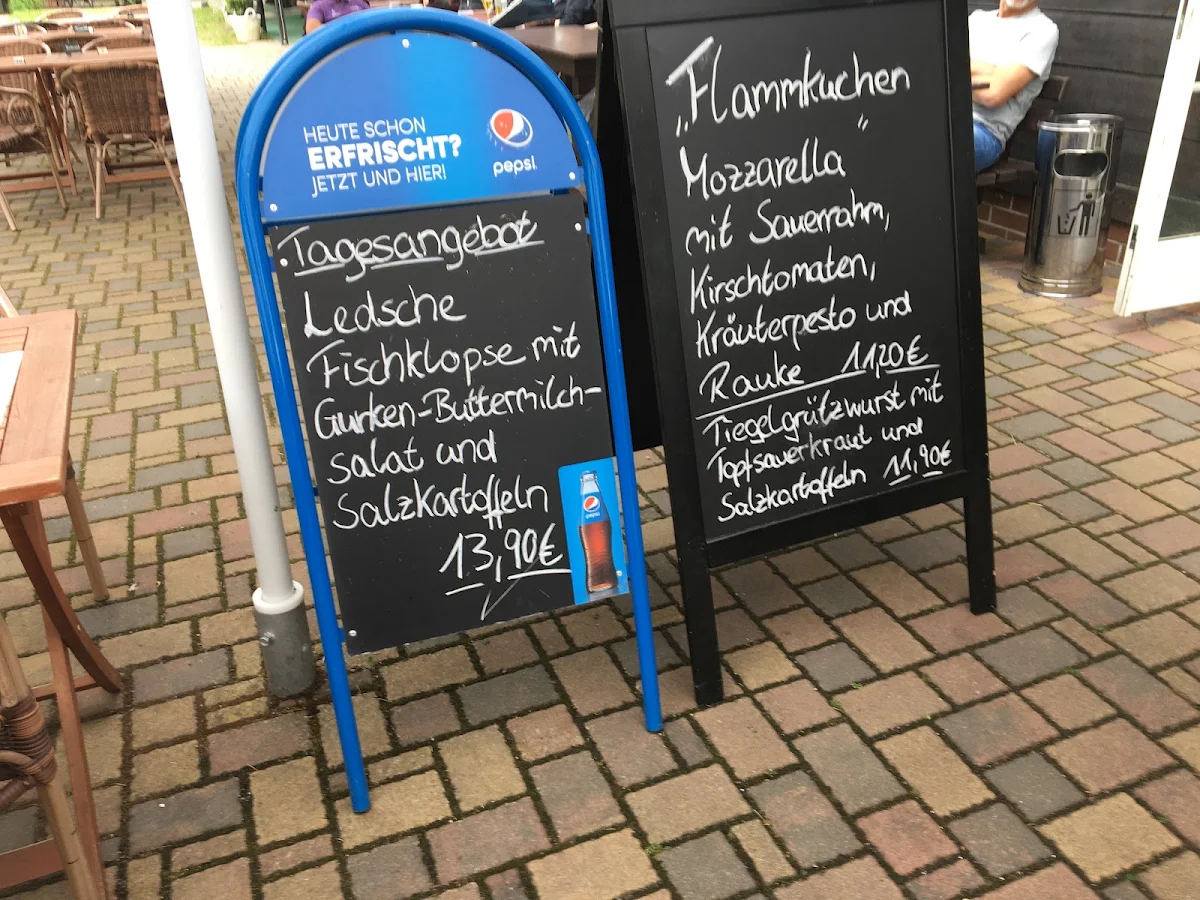 HEUTE SCHON
ERFRISCHT?
JETZT UND HIER!
pepsi
Tagesangebot
Ledsche
Fischklopse mit
Gurken-Buttermilch-
salat und
Salzkartoffeln
13,90€
pepsi
„Flammkuchen
"
Mozzarella
mit Sauerrahm,
Kirschtomaten,
Kräuterpesto und
Rauke 11,20€
Tiegelgrützwurst mit
Topfsauerkraut und
Salzkartoffeln 11,90€